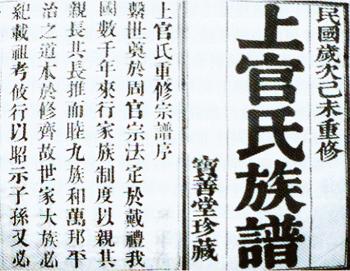 民國歲次己未重修
上官氏族譜
寶善堂珍藏
上官氏重修宗譜序
繫世奠於周官宗法定於戴禮我
國數千年來行家族制度以親其
親長其長推而睦九族和萬邦平
治之道本於修齊故世家大族必
紀載祖考攸行以昭示子孫又必